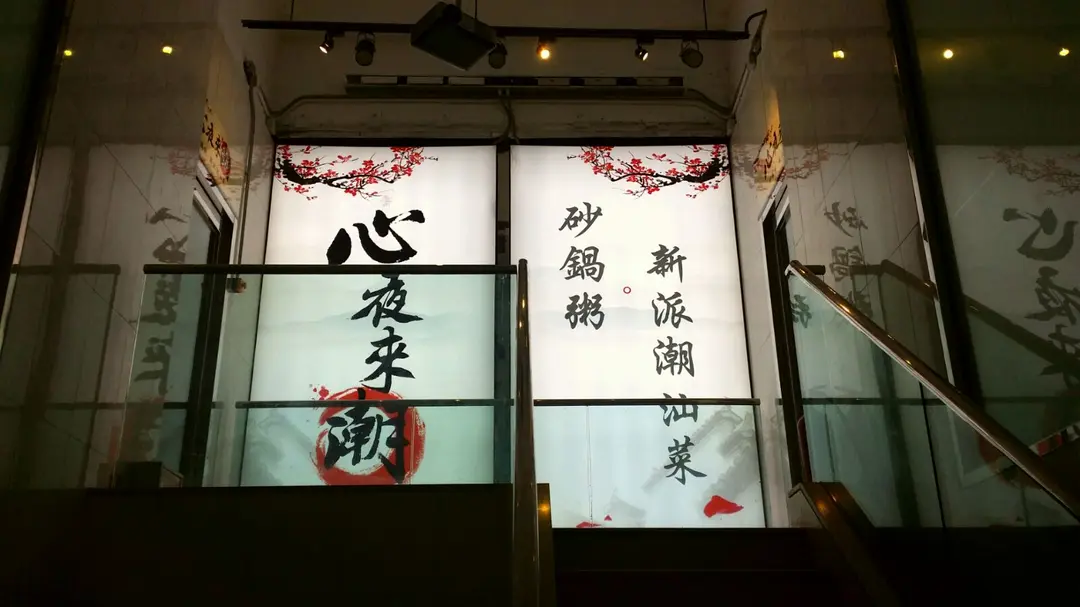 心夜来潮
新派潮汕菜
砂鍋粥